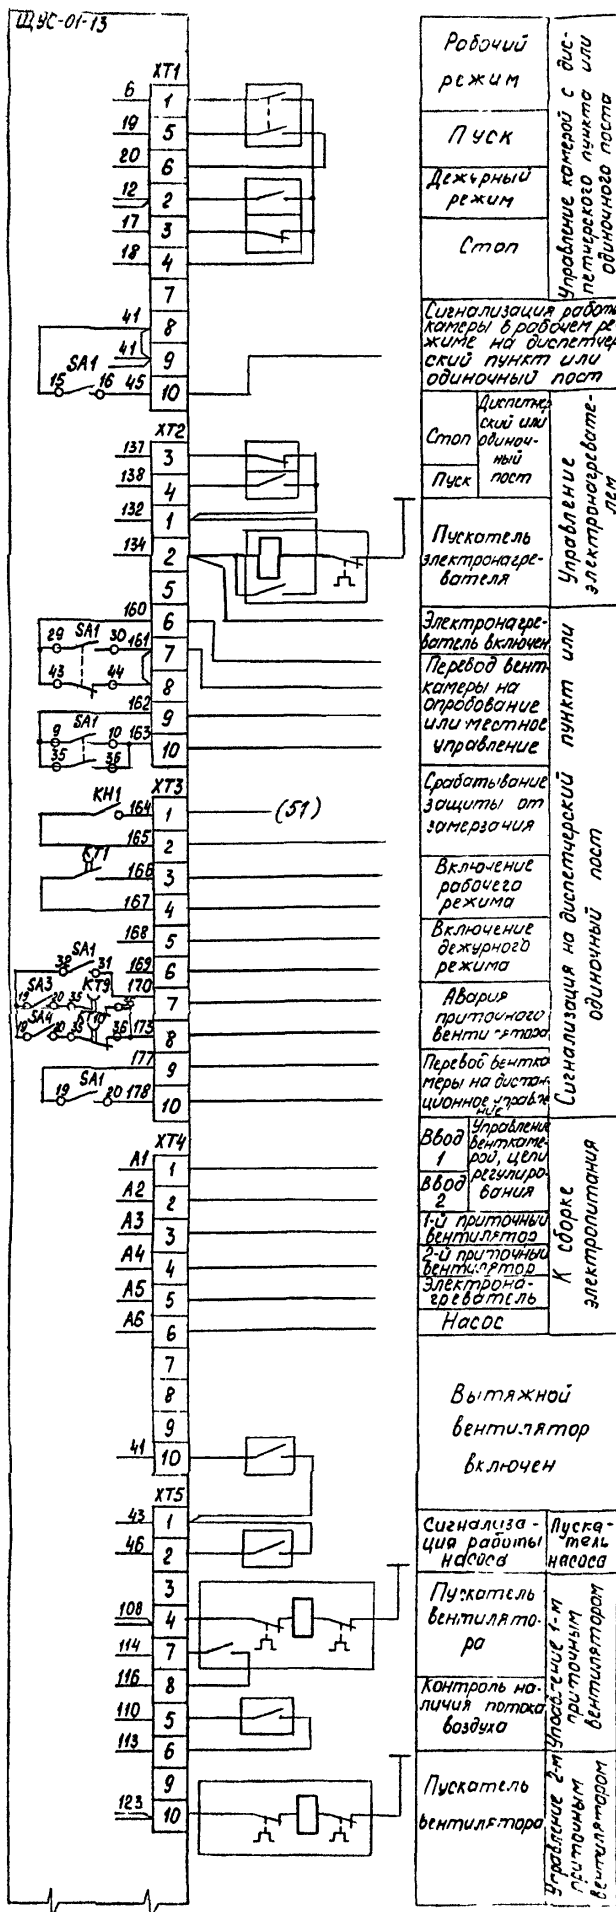 ЩУС-01-13
XT1
6
1
19
5
20
6
12
2
17
3
18
4
7
41
8
41
9
SA1
15
16
45
10
XT2
137
3
138
4
132
1
134
2
5
160
6
29
SA1
30
161
7
43
44
8
162
9
SA1
9
10
163
10
35
36
XT3
KH1
164
1
(51)
165
2
KT1
166
3
167
4
168
5
SA1
32
31
169
6
170
SA3
19
20
35
KT9
36
7
SA4
19
20
35
KT10
36
173
8
177
9
SA1
19
20
178
10
XT4
A1
1
A2
2
A3
3
A4
4
A5
5
A6
6
7
8
9
41
10
XT5
43
1
46
2
3
108
4
114
7
116
8
110
5
113
6
9
123
10
Рабочий
режим
Пуск
Дежурный
режим
Стоп
Управление камерой с дис-
петчерского пункта или
одиночного поста
Сигнализация работы
камеры в рабочем ре-
жиме на диспетчер-
ский пункт или
одиночный пост
Стоп
Пуск
Диспетчер-
ский или
одиноч-
ный
пост
Пускатель
электронагре-
вателя
Управление
электронагревате-
лем
Электронагре-
ватель включен
Перевод вент-
камеры на
опробование
или местное
управление
Срабатывание
защиты от
замерзания
Включение
рабочего
режима
Включение
дежурного
режима
Авария
приточного
вентилятора
Перевод вентка
меры на дистан
ционное управле
ние
Сигнализация на диспетчерский пункт или
одиночный пост
Ввод
1
Ввод
2
Управление
венткаме-
рой, цепи
регулиро-
вания
1-й приточный
вентилятор
2-й приточный
вентилятор
Электрона-
греватель
Насос
К сборке
электропитания
Вытяжной
вентилятор
включен
Сигнализа-
ция работы
насоса
Пуска-
тель
насоса
Пускатель
вентилято-
ра
Контроль на-
личия потока
воздуха
Управление 1-м
приточным
вентилятором
Пускатель
вентилятора
Управление 2-м
приточным
вентилятором